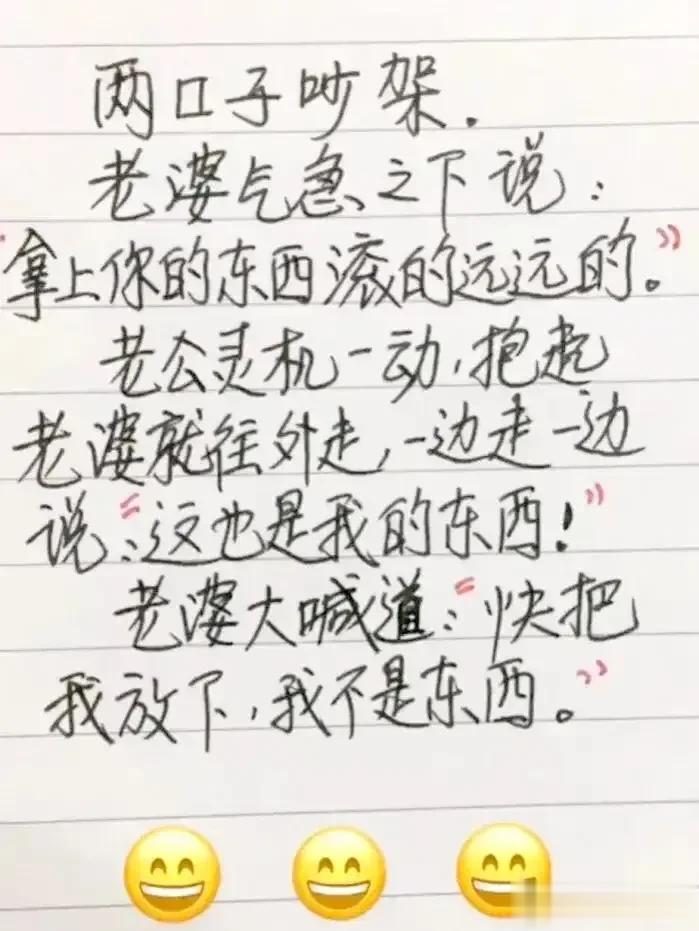 两口子吵架.
老婆气急之下说:
"拿上你的东西滚的远远的。"
老公灵机一动,抱起
老婆就往外走,一边走一边
说:"这也是我的东西!"
老婆大喊道:"快把
我放下,我不是东西。"